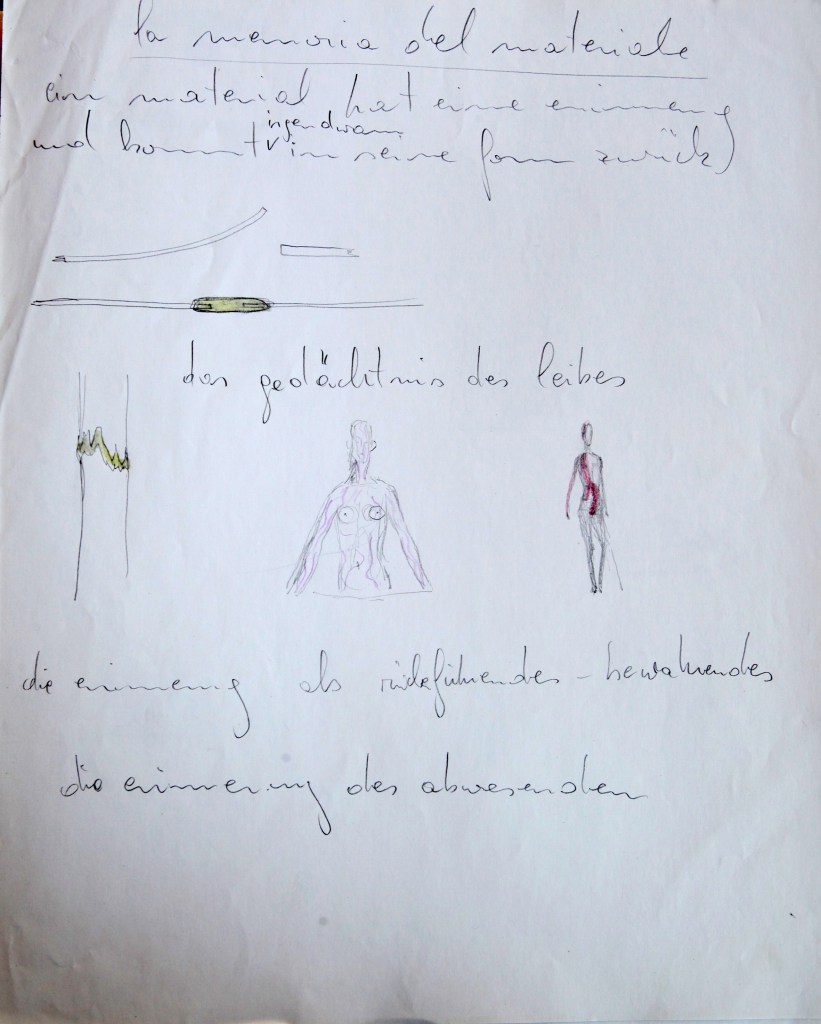 la memoria del materiale
ein material hat eine erinnerung
irgendwann
und kommt in seine form zurück)
das gedächtnis des leibes
die erinnerung als rückführendes - bewahrendes
die erinnerung des abwesenden